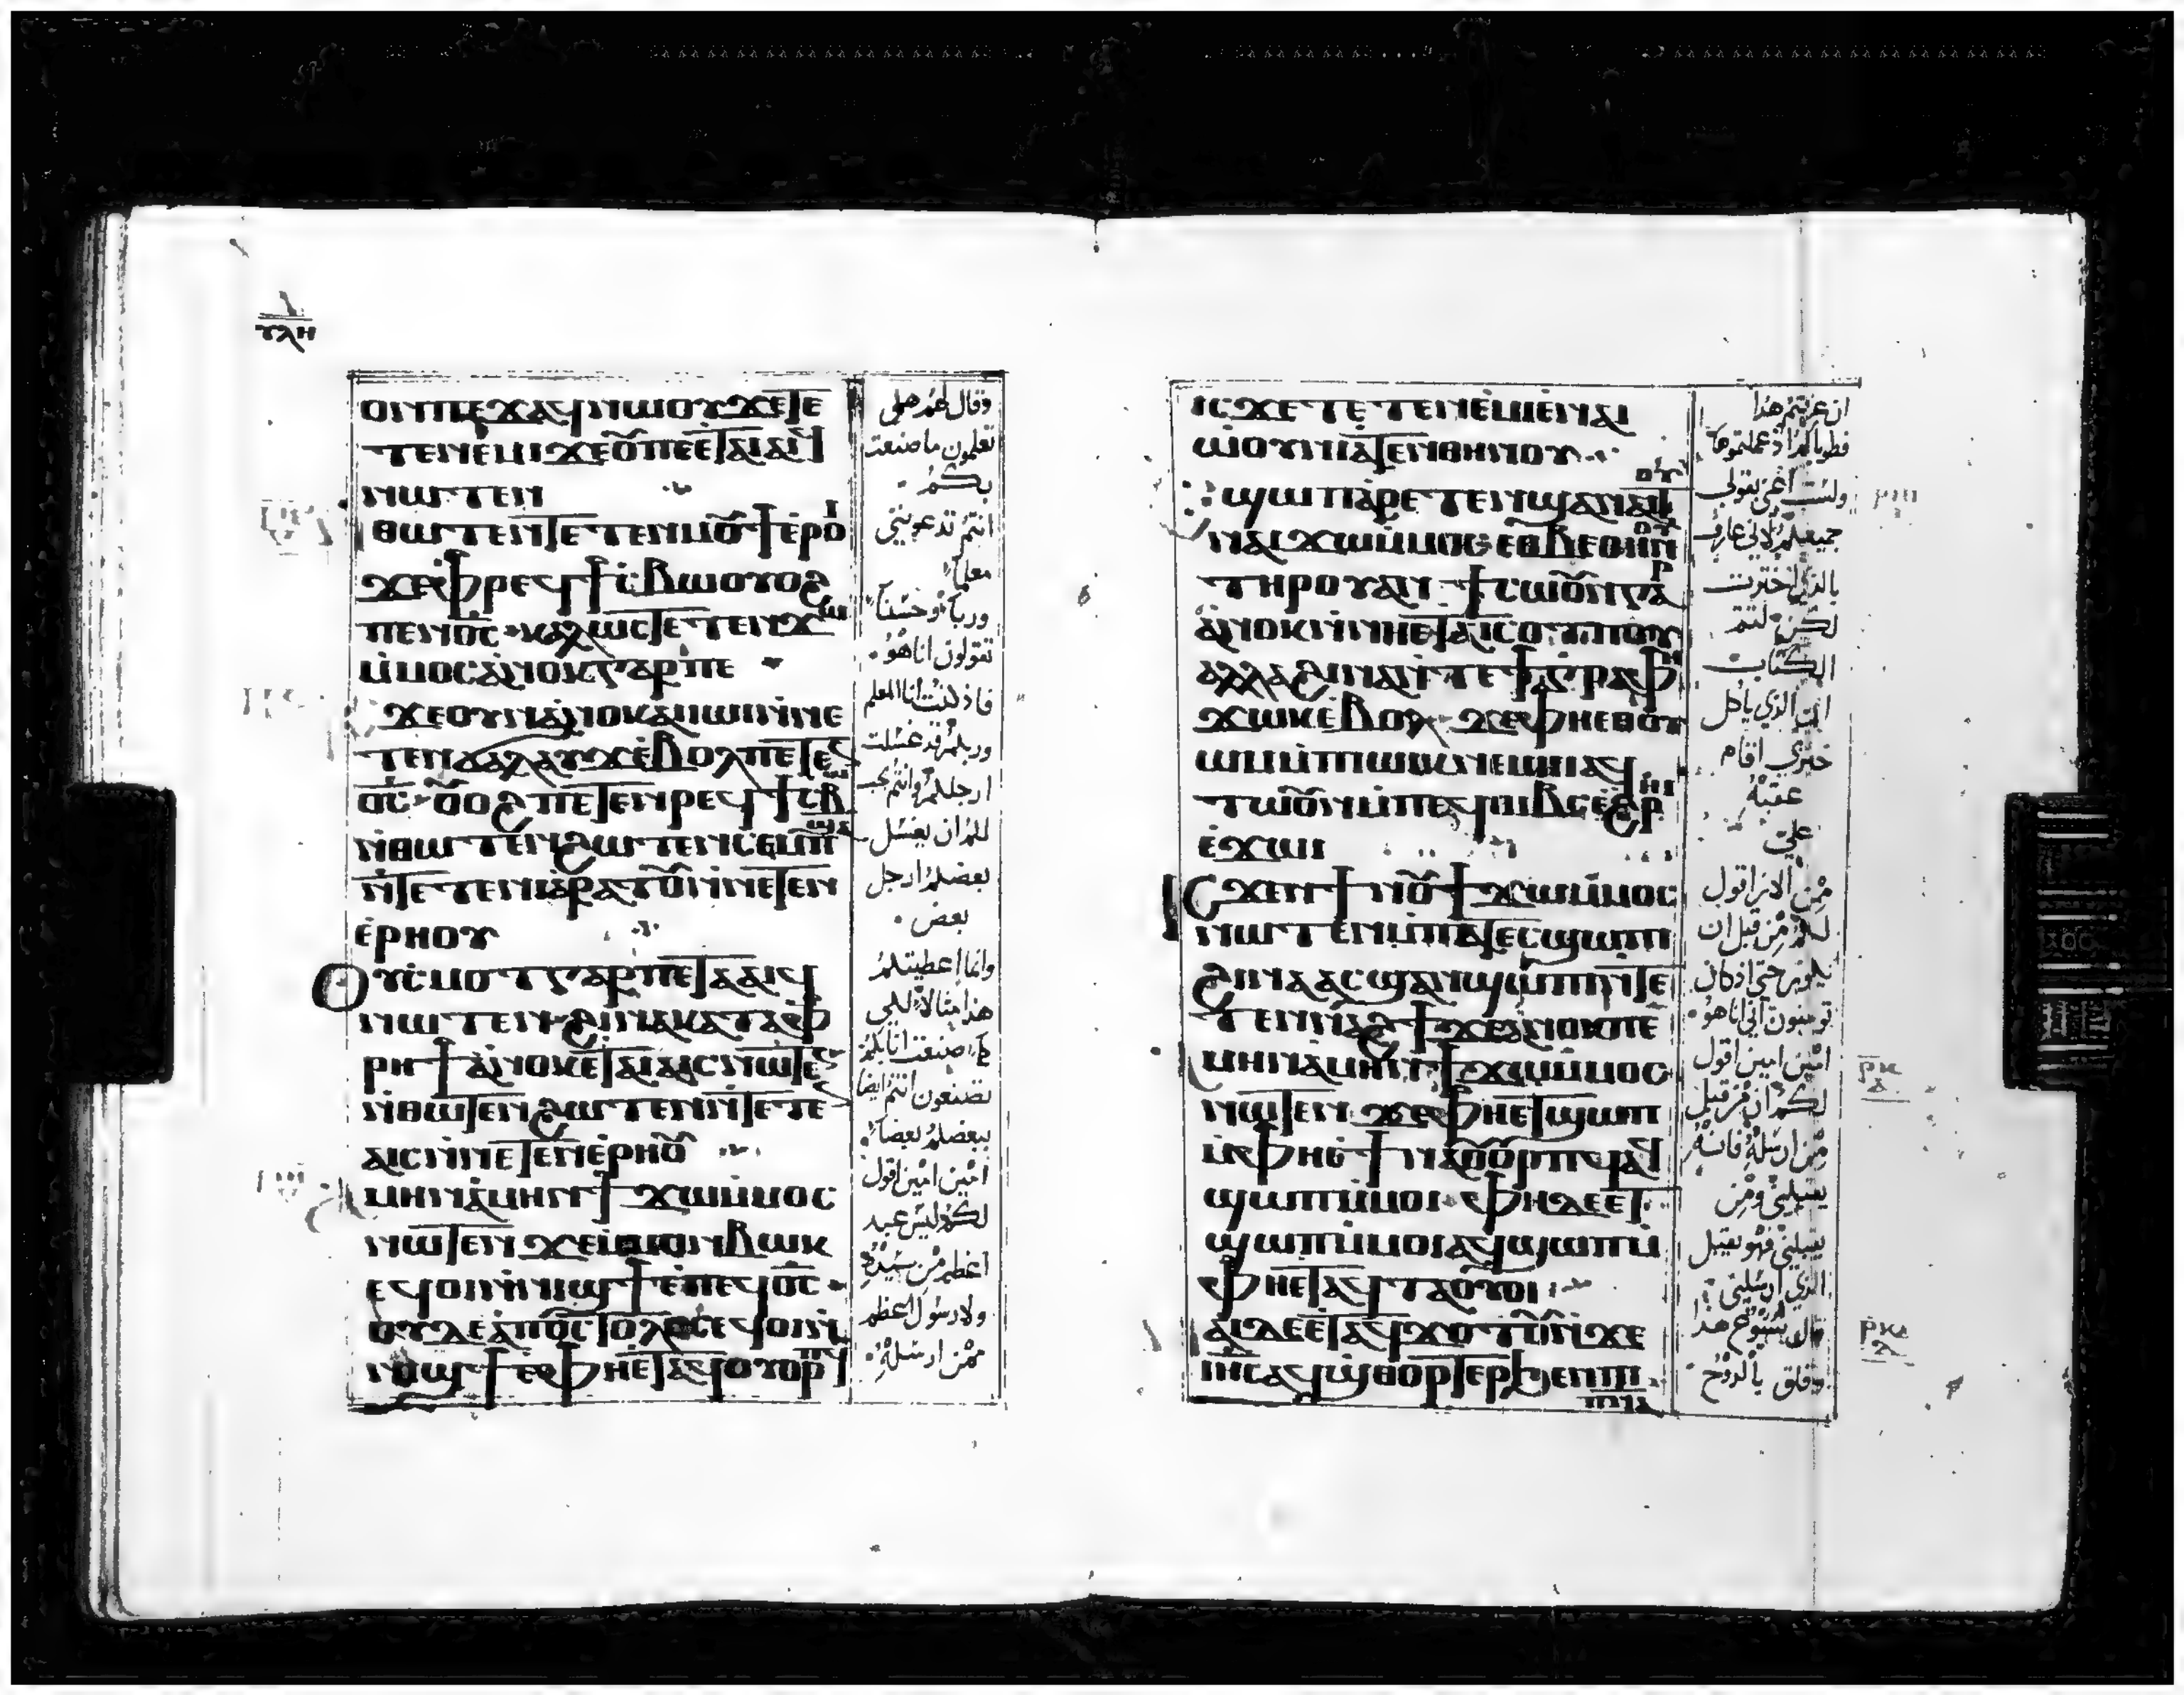 ⲩⲗⲏ
ⲟⲛⲡⲉϫⲁϥⲛⲱⲟⲩϫⲉⲧⲉ
ⲧⲉⲛⲉⲙⲓϫⲉⲟ̅ⲡⲉⲉⲧⲁⲓⲁⲓϥ
ⲛⲱⲧⲉⲛ
ⲛⲑⲱⲧⲉⲛⲧⲉⲧⲉⲛⲙⲟ̅ϯⲉⲣⲟⲓ
ϫⲉⲫⲣⲉϥϯⲥⲃⲱⲟⲩⲟϩ
ⲡⲉⲛⲟ̅ⲥ̅ ⲕⲁⲗⲱⲥⲧⲉⲧⲉⲛϫⲱ
ⲙⲙⲟⲥⲁⲛⲟⲕⲅⲁⲣⲡⲉ
ⲓⲥϫⲉⲟⲩⲛⲁⲛⲟⲕⲁⲓⲓⲱⲛⲛⲉ
ⲧⲉⲛϭⲁⲗⲁⲩϫⲉⲃⲟⲗⲡⲉⲧⲉⲛ
ⲟ̅ⲥ̅ ⲟ̅ⲟϩⲡⲉⲧⲉⲛⲣⲉϥϯⲥⲃⲱ
ⲛⲑⲱⲧⲉⲛϩⲱⲧⲉⲛⲥⲉⲙⲡϣⲁ
ⲛⲧⲉⲧⲉⲛⲓⲁⲣⲁⲧⲟ̅ⲛⲛⲉⲧⲉⲛ
ⲉⲣⲏⲟⲩ
ⲟⲩⲥⲙⲟⲧⲅⲁⲣⲡⲉⲧⲁⲁⲓϥ
ⲛⲱⲧⲉⲛϩⲓⲛⲁⲕⲁⲧⲁⲫ
ⲣⲏϯⲁⲛⲟⲕⲉⲧⲁⲓⲁⲓⲥⲛⲱⲧⲉⲛ
ⲛⲑⲱⲧⲉⲛϩⲱⲧⲉⲛⲛⲧⲉⲧⲉⲛ
ⲁⲓⲥⲛⲛⲉⲧⲉⲛⲉⲣⲏⲟ̅
ⲁⲙⲏⲛⲁⲙⲏⲛϯϫⲱⲙⲙⲟⲥ
ⲛⲱⲧⲉⲛϫⲉⲙⲙⲟⲛⲃⲱⲕ
ⲉϥⲟⲓⲛⲛⲓϣϯⲉⲡⲉϥⲟ̅ⲥ̅
ⲟⲩⲇⲉⲁⲡⲟⲥⲧⲟⲗⲟⲥⲉϥⲟⲓⲛ
ⲛⲓϣϯⲉⲫⲏⲉⲧⲁϥⲟⲩⲟⲣⲡϥ
وقال لهم هل
تعلمون ما صنعت
بكم
انتم تدعونني
معلما
وربا وحسنا
تقولون انا هو
فاذ كنت انا المعلم
وربكم قد غسلت
ارجلكم وانتم يجب
لكم ان يغسل
بعضكم ارجل
بعض
وانما اعطيتكم
هذا مثالا لكي
كما صنعت انا بكم
تصنعون انتم ايضا
ببعضكم بعضا
امين امين اقول
لكم ليس عبد
اعظم من سيده
ولا رسول اعظم
ممن ارسله
ⲓⲥϫⲉⲧⲉⲧⲉⲛⲉⲙⲓⲉⲛⲁⲓ
ⲱⲟⲩⲛⲓⲁⲧⲉⲛⲑⲏⲛⲟⲩ
ⲉϣⲱⲡⲁⲣⲉⲧⲉⲛϣⲁⲛⲁⲓⲧⲟⲩ
ⲛⲁⲓϫⲱⲙⲙⲟⲥⲉⲑⲃⲉⲑⲏⲛⲟⲩ
ⲧⲏⲣⲟⲩⲁⲛ ϯⲥⲱⲟ̅ⲛⲅⲁⲣ
ⲁⲛⲟⲕⲛⲛⲏⲉⲧⲁⲓⲥⲟⲧⲡⲟⲩ
ⲁⲗⲗⲁϩⲓⲛⲁⲛⲧⲉϯⲅⲣⲁⲫⲏ
ϫⲱⲕⲉⲃⲟⲗ ϫⲉⲫⲏⲉⲑⲟⲩ
ⲱⲙⲙⲡⲁⲱⲓⲕⲛⲉⲙⲏⲓⲁϥ
ⲧⲱⲟ̅ⲛⲙⲡⲉϥⲑⲓⲃⲥⲉϩⲣⲏⲓ
ⲉϫⲱⲓ
ⲓⲥϫⲉⲛϯⲛⲟ̅ϯϫⲱⲙⲙⲟⲥ
ⲛⲱⲧⲉⲛⲙⲡⲁⲧⲉⲥϣⲱⲡⲓ
ϩⲓⲛⲁⲁⲥϣⲁⲛϣⲱⲡⲓⲛⲧⲉ
ⲧⲉⲛⲛⲁϩϯϫⲉⲁⲛⲟⲕⲡⲉ
ⲁⲙⲏⲛⲁⲙⲏⲛϯϫⲱⲙⲙⲟⲥ
ⲛⲱⲧⲉⲛ ϫⲉⲫⲏⲉⲧϣⲱⲡ
ⲙⲫⲏⲉϯⲛⲁⲟ̅ⲟⲣⲡϥⲁϥ
ϣⲱⲡⲙⲙⲟⲓ ⲫⲏⲇⲉⲉⲧ
ϣⲱⲡⲙⲙⲟⲓⲁϥϣⲱⲡⲙ
ⲫⲏⲉⲧⲁϥⲧⲁⲟⲩⲟⲓ
ⲛⲁⲓⲇⲉⲉⲧⲁϥϫⲟⲧⲟ̅ⲛϫⲉ
ⲓⲏⲥⲁϥϣⲑⲟⲣⲧⲉⲣϧⲉⲛⲡⲓ
ⲡⲛⲁ
ان عرفتم هذا
فطوباكم اذ عملتموها
ولست اعني بقولي
جميعكم لاني عارف
بالذي اخترت
لكن ليتم
الكتاب
ان الذي ياكل
خبزي اقام
عقبه
علي
من الان اقول
لكم من قبل ان
يكون حتى اذ كان
تومنون اني انا هو
امين امين اقول
لكم ان من قبل
من ارسله فانه
يقبلني ومن
يقبلني فهو يقبل
الذي ارسلني
قال يسوع هذا
وقلق بالروح